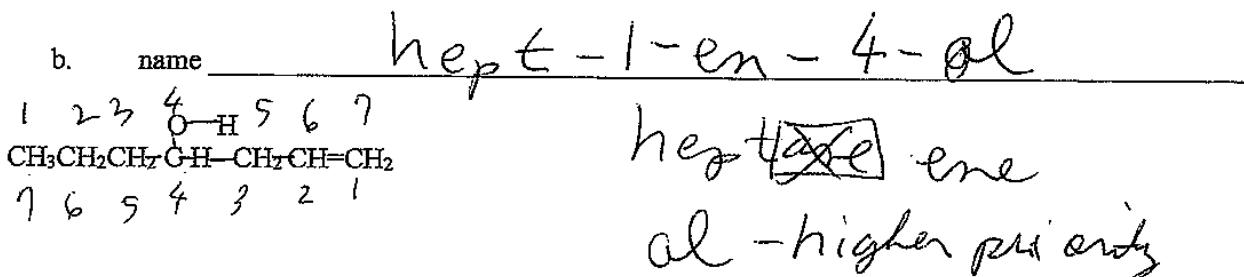 b. name hept-1-en-4-ol
1 2 3 4 5 6 7
O—H
CH₃CH₂CH₂CH—CH₂CH=CH₂
7 6 5 4 3 2 1
heptane ene
ol - higher priority